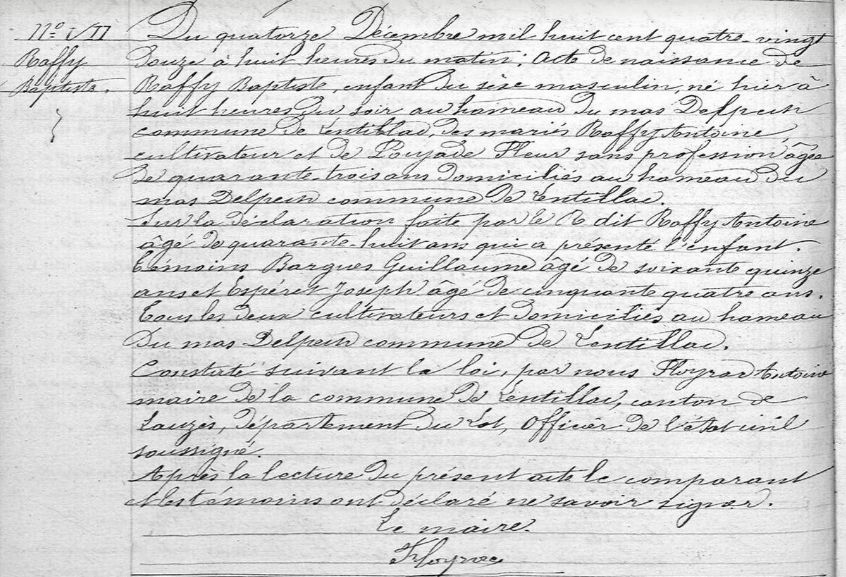 N° VII
Raffy
Baptiste.
Du quatorze Décembre mil huit cent quatre-vingt
douze à huit heures du matin; Acte de naissance de
Raffy Baptiste, enfant du sèxe masculin, né hier à
huit heures du soir au hameau du mas Delpech
commune de Lentillac, des mariés Raffy Antoine
cultivateur et de Poujade Fleur sans profession âgée
de quarante trois ans domiciliés au hameau du
mas Delpech commune de Lentillac.
Sur la déclaration faite par le dit Raffy Antoine
âgé de quarante-huit ans qui a présenté l'enfant.
Témoins Bargues Guillaume âgé de soixante quinze
ans et Espéret Joseph âgé de cinquante quatre ans.
Tous les deux cultivateurs et domiciliés au hameau
du mas Delpech commune de Lentillac.
Constaté suivant la loi, par nous Floyrac Antoine
maire de la commune de Lentillac, canton de
Lauzès, département du Lot, Officier de l'état civil
soussigné.
Après la lecture du présent acte le comparant
et les témoins ont déclaré ne savoir signer.
Le maire.
Floyrac